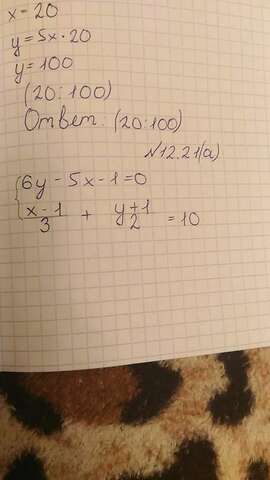 x - 20
y = 5x · 20
y = 100
(20 : 100)
Ответ: (20 : 100)
N12.21(а)
{6y - 5x - 1 = 0
{x - 1/3 + y + 1/2 = 10